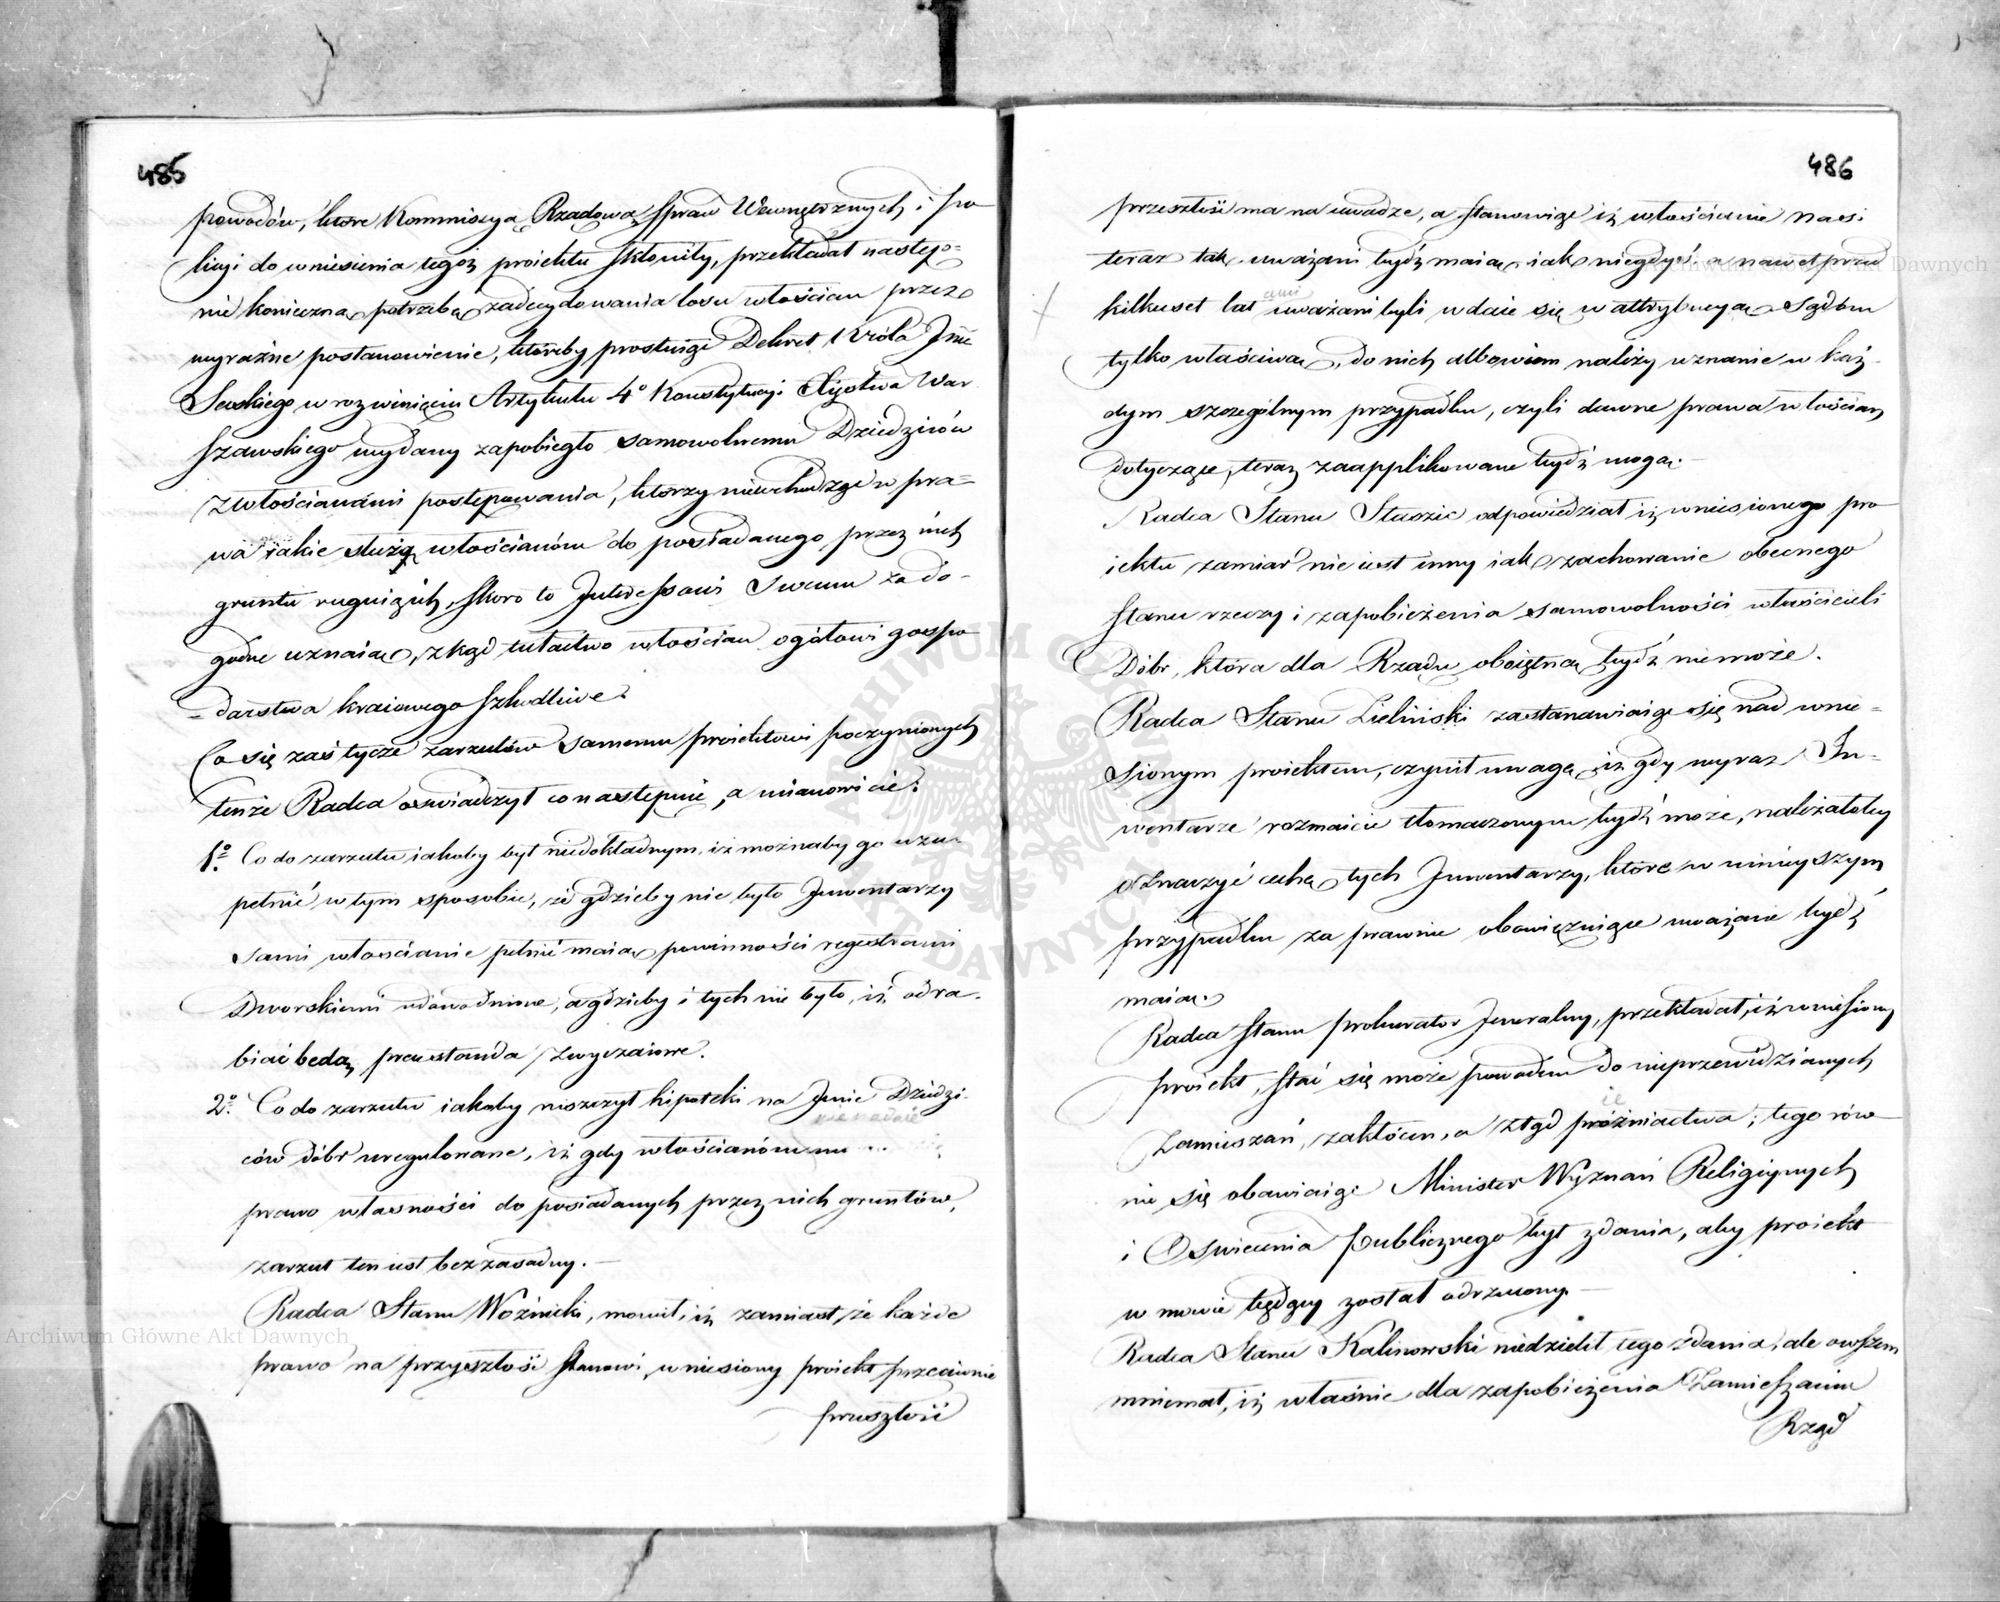 485
powodów, które Kommissya Rządowa Spraw Wewnętrznych i Po
licyi do wniesienia tegoż proiektu skłoniły, przekładał następ=
nie konieczną potrzebę zadecydowania losu włościan przez
wyraźne postanowienie, któreby prostuiąc Dekret Króla Jmci
Saskiego w rozwinięciu Artykułu 4o Konstytucyi Xięstwa War
szawskiego wydany zapobiegło samowolnemu Dziedziców
z włościanami postępowania, którzy niewchodząc w pra=
wa iakie służą włościanóm do posiadanego przez nich
gruntu ruguią ich, skoro to Interessowi swemu za do-
godne uznaią, zkąd tułactwo włościan ogółowi gospo
=darstwa kraiowego szkodliwe.
Co się zaś tycze zarzutów samemu proiektowi poczynionych
tenże Radca oświadczył co następuie, a mianowicie:
1o Co do zarzutu iakoby był niedokładnym, iż możnaby go uzu-
pełnić w tym sposobie, że gdzieby nie było Inwentarzy
sami włościanie pełnić maią powinności regestrami
Dworskiemi udowodnione, a gdzieby i tych nie było, iż odra-
biać będą prestanda zwyczaiowe.
2o Co do zarzutu iakoby niszczył hipoteki na Imie Dziedzi-
ców dóbr uregulowane, iż gdy włościanóm nie nadaie
prawo własności do posiadanych przez nich gruntów,
zarzut ten iest bezzasadny.
Radca Stanu Woźnicki, mówił, iż zamiast, że każde
prawo na przyszłość stanowi, wniesiony proiekt przeciwnie
przeszłość
486
przeszłość ma na uwadze, a stanowiąc iż włościanie nasi
teraz tak uważani bydź maią, iak niegdyś a nawet przed
kilkuset laty uważani byli wdaie się w attrybucyą Sądom
tylko właściwą, do nich albowiem należy uznanie w każ-
dym szczególnym przypadku, czyli dawne prawa włościan
dotyczące, teraz zaapplikowane bydź mogą.
Radca Stanu Staszic odpowiedział iż wniesionego pro
iektu zamiar nie iest inny iak zachowanie obecnego
stanu rzeczy i zapobieżenia samowolności właścicieli
Dóbr, która dla Rządu oboiętną bydź niemoże.
Radca Stanu Zieliński zastanawiaiąc się nad wnie=
sionym proiektem, czynił uwagę, iż gdy wyraz In=
wentarze rozmaicie tłomaczonym bydź może, należałoby
oznaczyć cechę tych Inwentarzy, które w ninieyszym
przypadku za prawnie obowięzuiące uważane bydź
maią.
Radca Stanu Prokurator Jeneralny, przekładał, iż wniesiony
proiekt, stać się może powodem do nieprzewidzianych
zamieszań, zakłóceń, a ztąd próżniactwa; tego rów
nie się obawiaiąc Minister Wyznań Religiynych
i Oświecenia Publicznego był zdania, aby proiekt
w mowie będący został odrzucony.
Radca Stanu Kalinowski niedzielił tego zdania, ale owszem
mniemał, iż właśnie dla zapobieżenia zamieszaniu
Rząd
Archiwum Główne Akt Dawnych